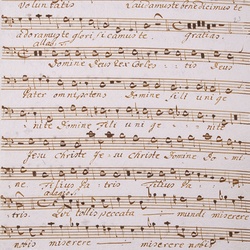 voluntatis laudamus te benedicimus te
adoramus te glorificamus te gratias
Domine Deus rex coeles tis Deus
Pater omnipotens Domine fili uni ge
nite Domine fili uni ge nite
Jesu christe Je su christe Domine Do mi
ne filius Pa tris filius Pa
tris Qui tollis peccata mundi miserere
nobis miserere miserere nobis